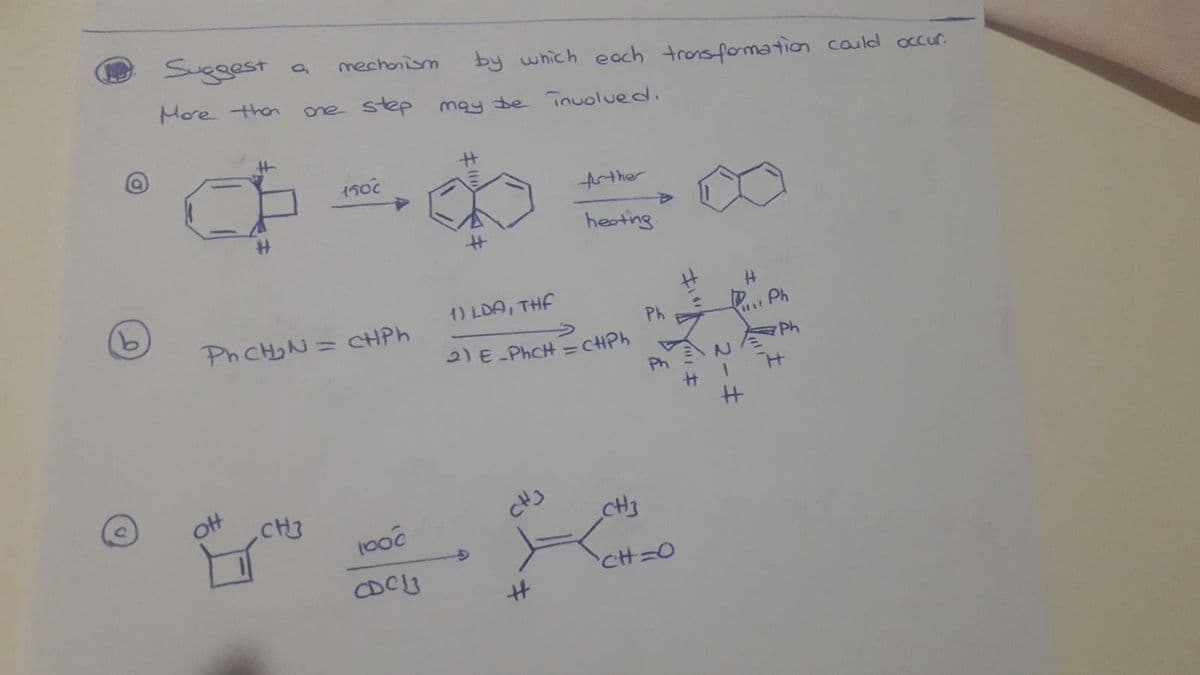 Suggest a mechanism by which each transformation could occur.
More than one step may be involved.
a
H
H
150°C
H
H
further
heating
b
PhCH2N = CHPh
1) LDA, THF
2) E-PhCH = CHPh
H H
Ph Ph
Ph Ph
H N H
H
c
OH CH3
100°C
CDCl3
CH3 CH3
H CH=O